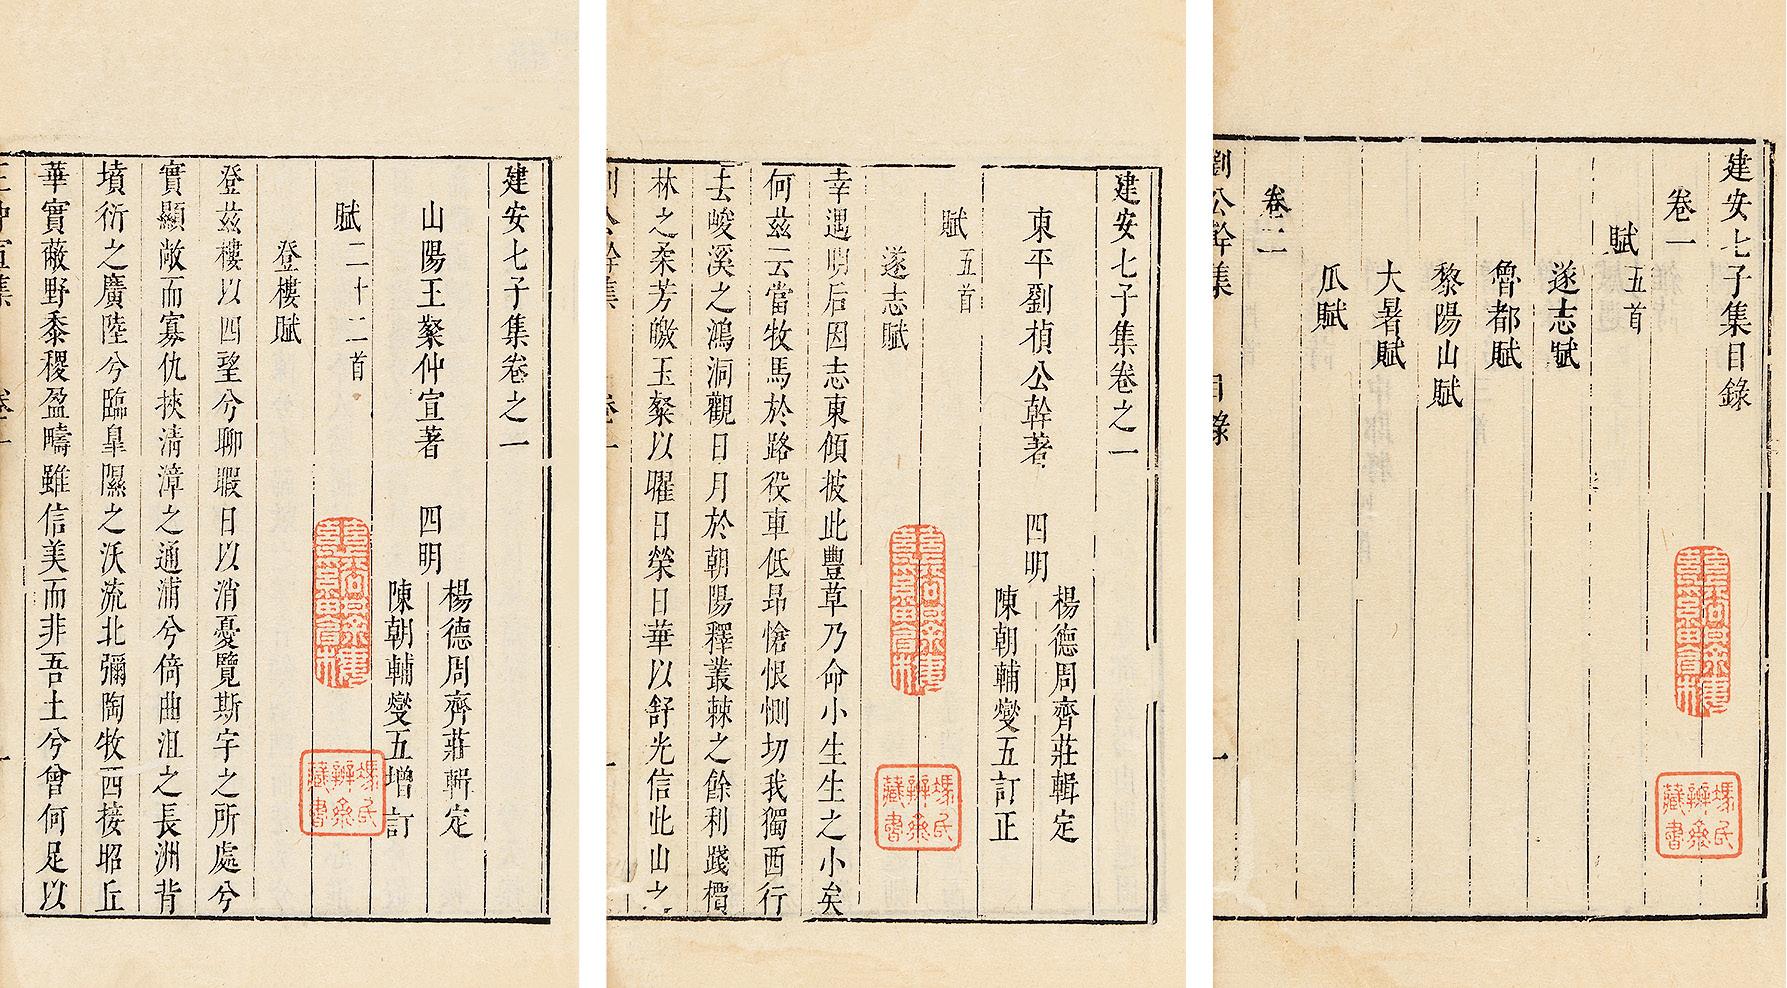 建安七子集目錄
卷一
賦五首
遂志賦
魯都賦
黎陽山賦
大暑賦
瓜賦
卷二
劉公幹集 目錄 一
馮氏辨齋藏書
建安七子集卷之一
東平劉楨公幹著 四明
楊德周齊莊輯定
陳朝輔燮五訂正
賦五首
遂志賦
幸遇明后因志東傾披此豐草乃命小生生之小矣
何茲云當牧馬於路役車低昂愴恨惻切我獨西行
去峻溪之鴻洞觀日月於朝陽釋叢棘之餘利踐檟
林之柔芳皦玉粲以曜日榮日華以舒光信此山之
劉公幹集 卷一 一
馮氏辨齋藏書
建安七子集卷之一
山陽王粲仲宣著 四明
楊德周齊莊輯定
陳朝輔燮五增訂
賦二十二首
登樓賦
登茲樓以四望兮聊暇日以消憂覽斯宇之所處兮
實顯敞而寡仇挾清漳之通浦兮倚曲沮之長洲背
墳衍之廣陸兮臨皐隰之沃流北彌陶牧西接昭丘
華實蔽野黍稷盈疇雖信美而非吾土兮曾何足以
王仲宣集 卷一 一
馮氏辨齋藏書